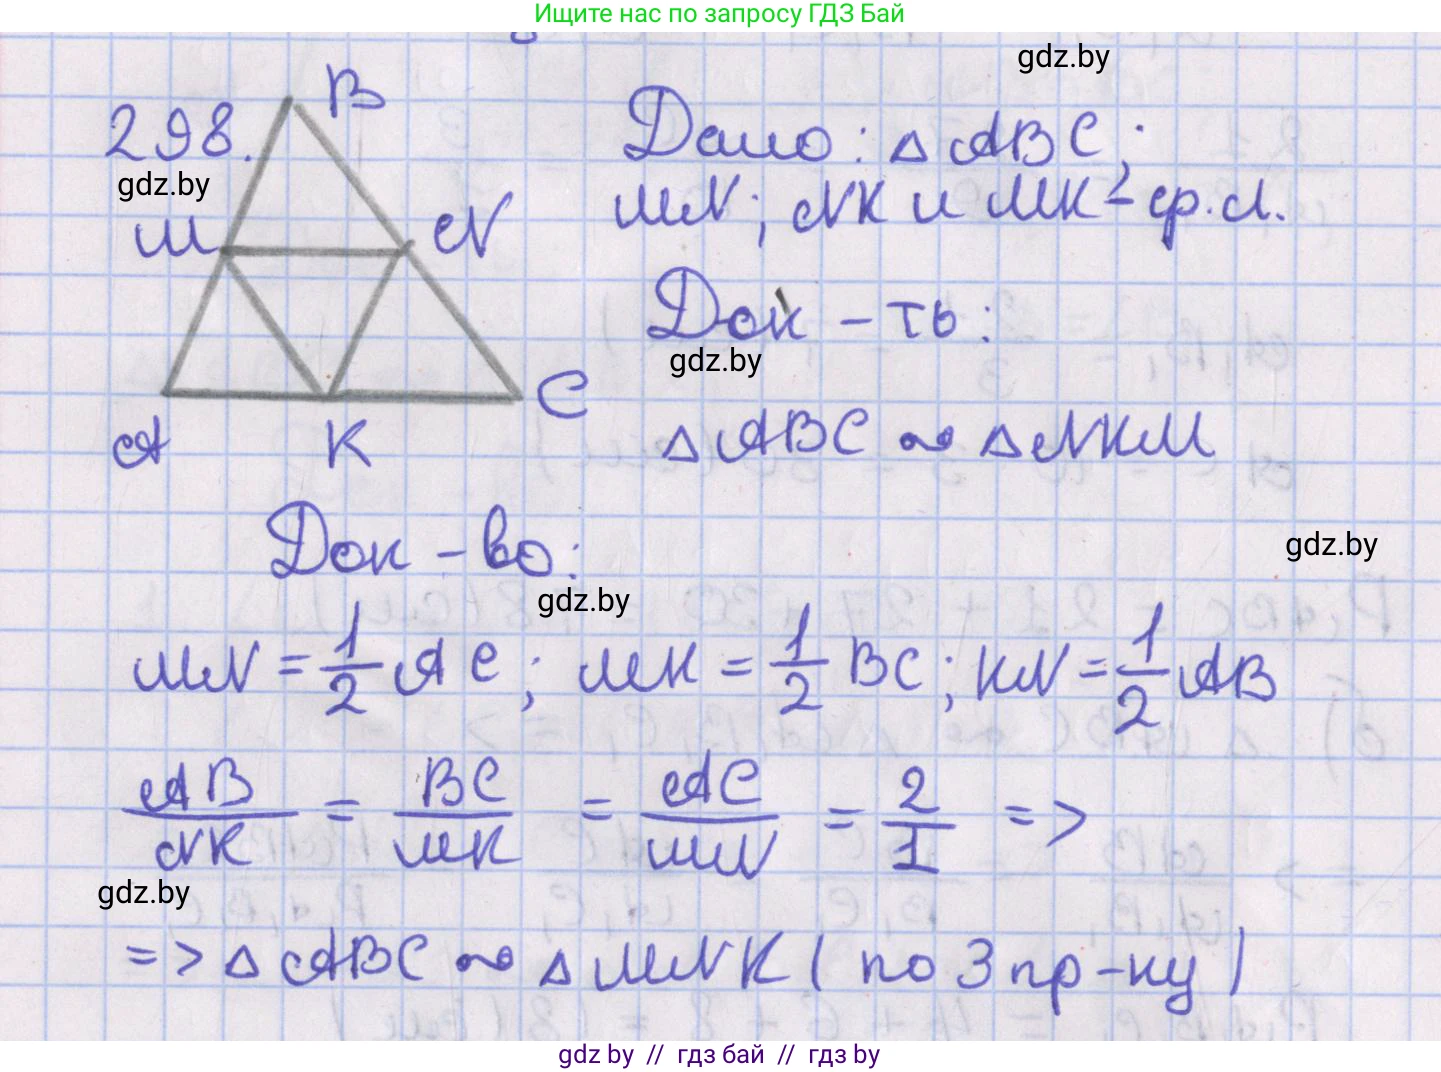 Ищите нас по запросу ГДЗ Бай
gdz.by
298.
B
Дано: △ ABC;
gdz.by
MN; NK и MK - ср. л.
M
N
Док - ть:
gdz.by
C
A
K
△ ABC ∾ △ NKM
Док - во:
gdz.by
gdz.by
MN = 1/2 AC; MK = 1/2 BC; KN = 1/2 AB
AB/NK = BC/MK = AC/MN = 2/1 =>
gdz.by
=> △ ABC ∾ △ MNK ( по 3 пр-ку )
gdz by // гдз бай // гдз by